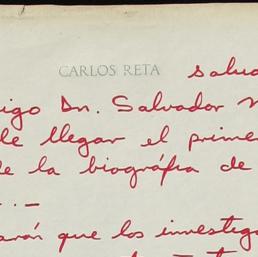 CARLOS RETA Salud
igo Dn. Salvador
le llegar el prime
de la biografía de
..-
arán que los investiga